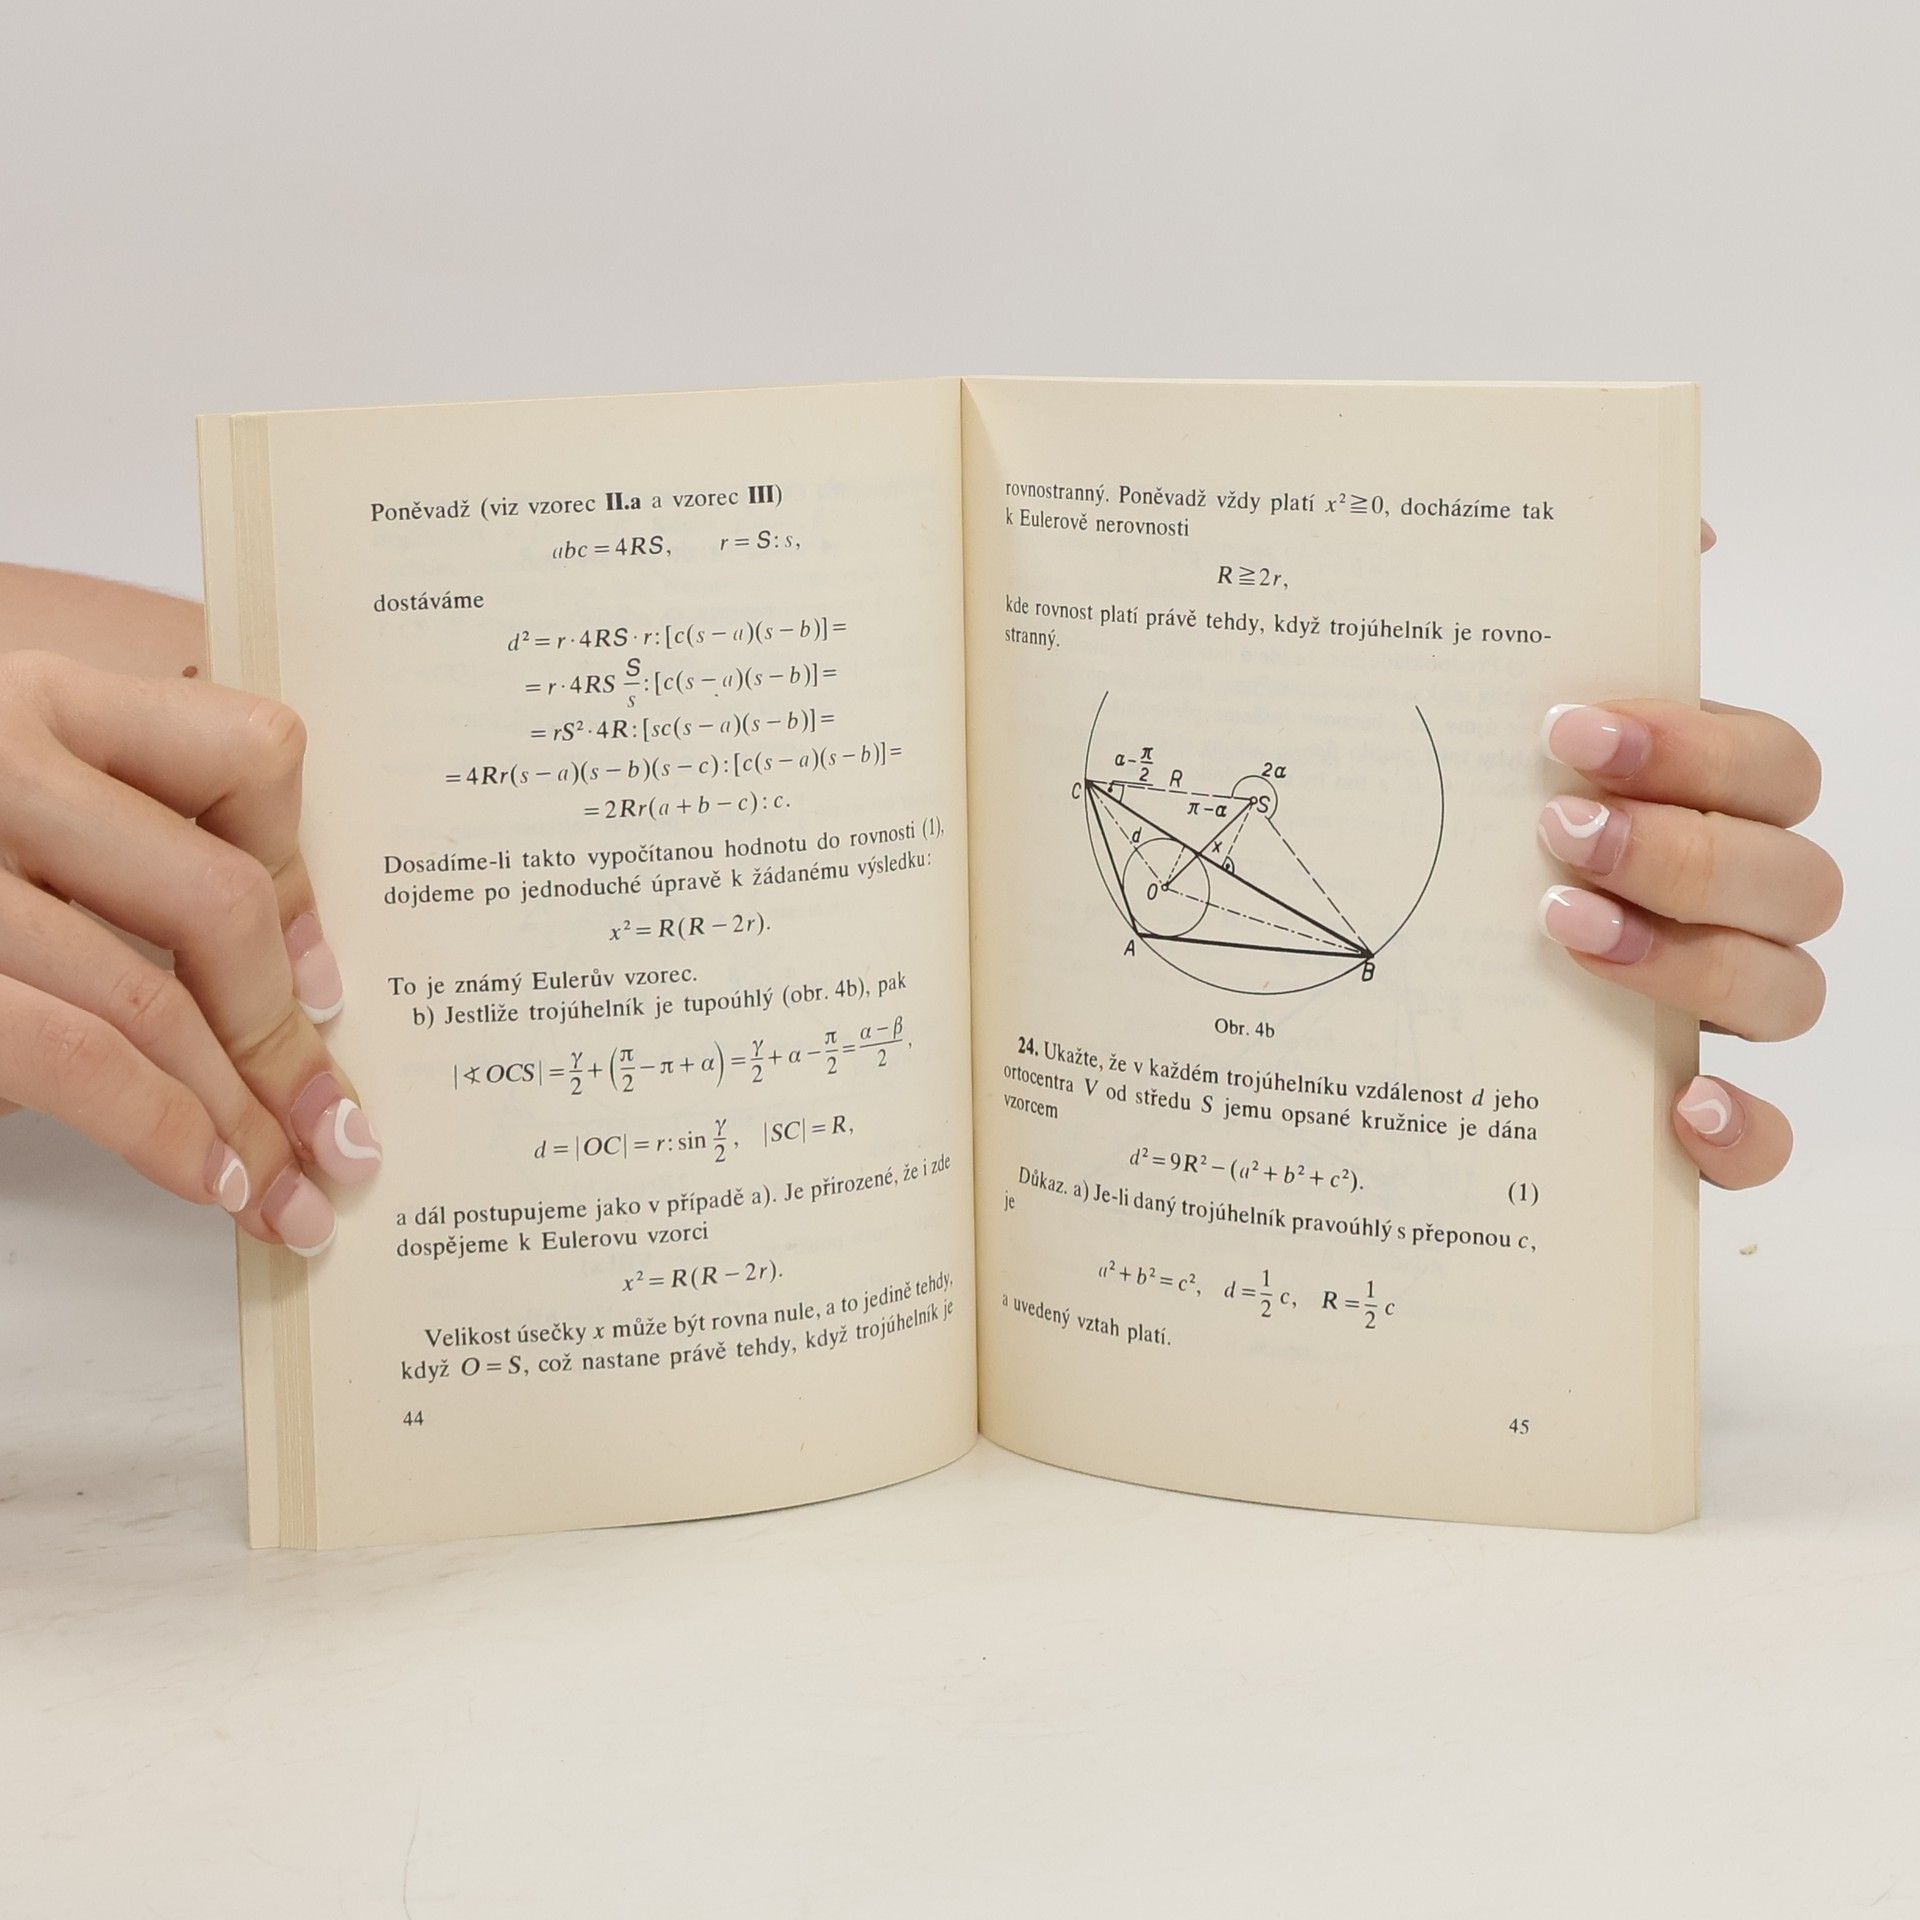 Poněvadž (viz vzorec II.a a vzorec III)
abc = 4RS, r = S : s,
dostáváme
d² = r · 4RS · r : [c(s − a)(s − b)] =
= r · 4RS S/s : [c(s − a)(s − b)] =
= rS² · 4R : [sc(s − a)(s − b)] =
= 4Rr(s − a)(s − b)(s − c) : [c(s − a)(s − b)] =
= 2Rr(a + b − c) : c.
Dosadíme-li takto vypočítanou hodnotu do rovnosti (1),
dojdeme po jednoduché úpravě k žádanému výsledku:
x² = R(R − 2r).
To je známý Eulerův vzorec.
b) Jestliže trojúhelník je tupoúhlý (obr. 4b), pak
|∢ OCS| = γ/2 + (π/2 − π + α) = γ/2 + α − π/2 = α − β/2,
d = |OC| = r : sin γ/2, |SC| = R,
a dál postupujeme jako v případě a). Je přirozené, že i zde
dospějeme k Eulerovu vzorci
x² = R(R − 2r).
Velikost úsečky x může být rovna nule, a to jedině tehdy,
když O = S, což nastane právě tehdy, když trojúhelník je
44
rovnostranný. Poněvadž vždy platí x² ≧ 0, docházíme tak
k Eulerově nerovnosti
R ≧ 2r,
kde rovnost platí právě tehdy, když trojúhelník je rovno-
stranný.
α − π/2
R
2α
C
π − α
S
d
x
O
A
B
Obr. 4b
24. Ukažte, že v každém trojúhelníku vzdálenost d jeho
ortocentra V od středu S jemu opsané kružnice je dána
vzorcem
d² = 9R² − (a² + b² + c²). (1)
Důkaz. a) Je-li daný trojúhelník pravoúhlý s přeponou c,
je
a² + b² = c², d = 1/2 c, R = 1/2 c
a uvedený vztah platí.
45